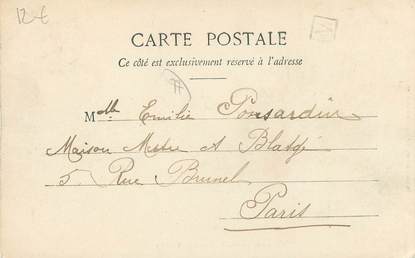 12 €
M
CARTE POSTALE
Ce côté est exclusivement reservé à l'adresse
Mlle Emilie Ponsardin
Maison et Blatgé
5 Rue Brunel
Paris